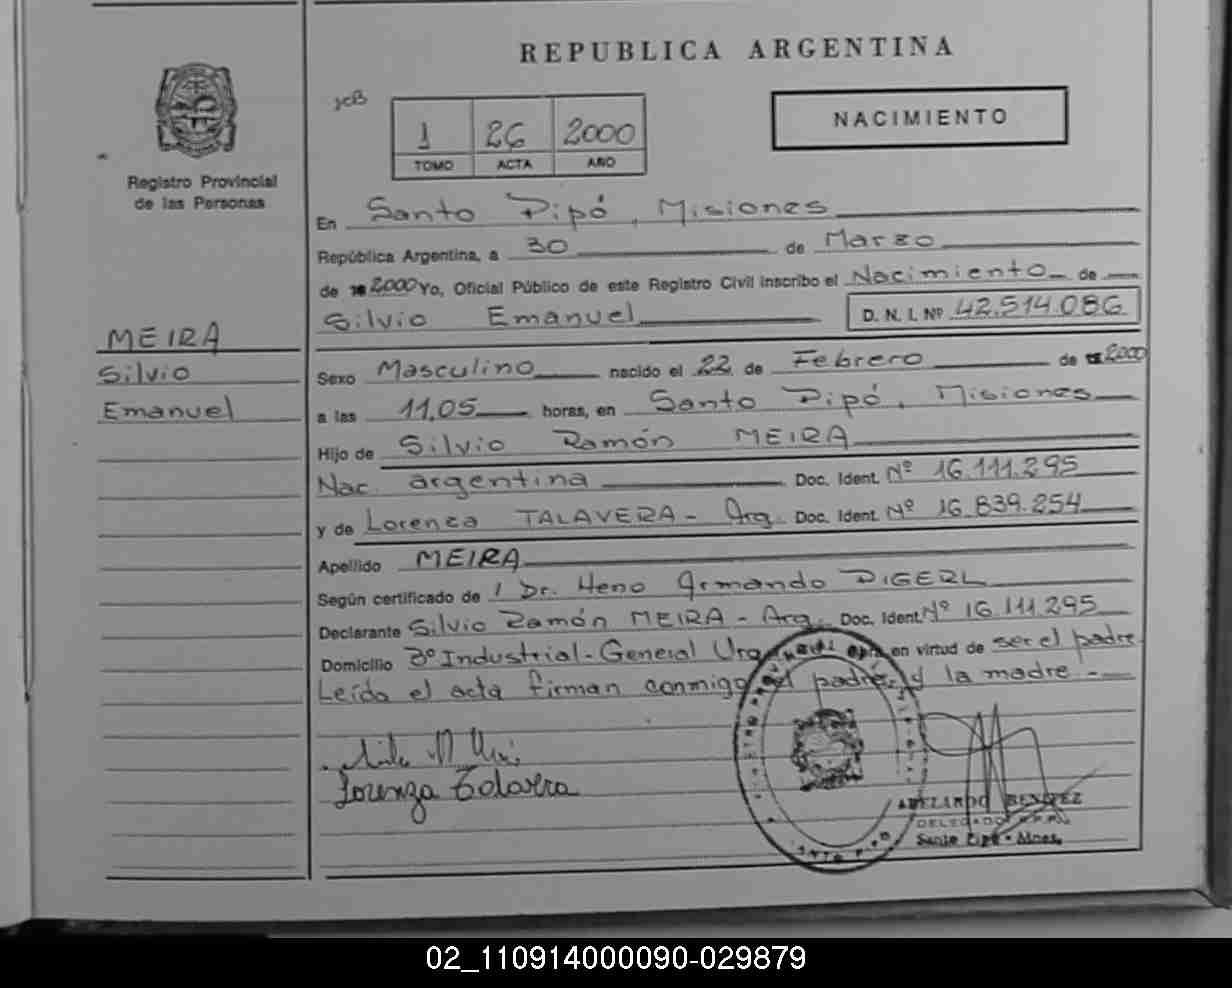 REPUBLICA ARGENTINA
JCB
1 26 2000
TOMO ACTA AÑO
NACIMIENTO
Registro Provincial
de las Personas
En Santo Pipó, Misiones
República Argentina, a 30 de Marzo
de 2000 Yo, Oficial Público de este Registro Civil inscribo el Nacimiento de
Silvio Emanuel D. N. I. Nº 42.514.086
MEIRA
Silvio
Emanuel
Sexo Masculino nacido el 22 de Febrero de 2000
a las 11,05 horas, en Santo Pipó, Misiones
Hijo de Silvio Ramón MEIRA
Nac. argentina Doc. Ident. Nº 16.111.295
y de Lorenza TALAVERA - Arg. Doc. Ident. Nº 16.839.254
Apellido MEIRA
Según certificado de / Dr. Heno Armando DIGERL
Declarante Silvio Ramón MEIRA - Arg. Doc. Ident. Nº 16.111.295
Domicilio Bº Industrial - General Urq en virtud de ser el padre
Leída el acta firman conmigo el padre y la madre -
Lorenza Talavera
SANTO PIPO
ABELARDO BENITEZ
DELEGADO R.P.P.
Santo Pipó - Mnes.
02_110914000090-029879